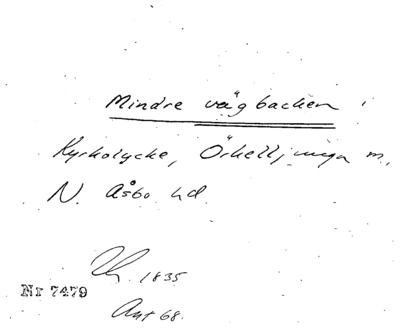 Mindre vägbacken
Kyrkolycke, Örkelljunga m.
N. Åsbo hd.
1835
Nr 7479
Ant 68.